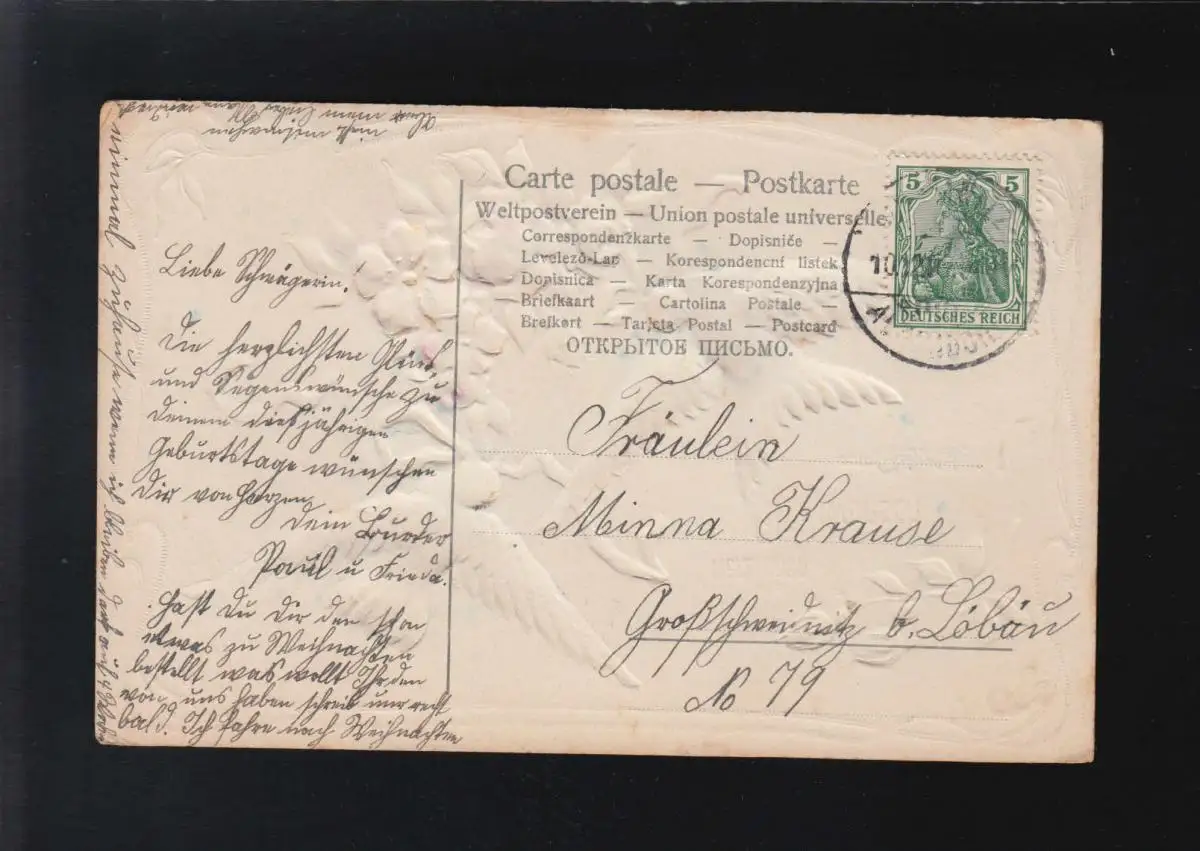 Carte postale — Postkarte
Weltpostverein — Union postale universelle
Correspondenzkarte — Dopisniče —
Levelező-Lap — Korespondencní lístek
Dopisnica — Karta Korespondenzyjna
— Briefkaart — Cartolina Postale —
Brefkort — Tarjeta Postal — Postcard
ОТКРЫТОЕ ПИСЬМО.
5 5
DEUTSCHES REICH
10.12.
Liebe Schwägerin!
Die herzlichsten Glück
und Segenswünsche zu
Deinem diesjährigen
Geburtstage wünschen
Dir von Herzen
Dein Bruder
Paul u Frieda.
Hast Du Dir den schon
etwas zu Weihnachten
bestellt was wollt Ihr den
von uns haben schreib nur recht
bald. Ich fahre nach Weihnachten
einmal zuhause wenn ich
nicht mitmachen
Fräulein
Minna Krause
Großschweidnitz b. Löbau
No 79